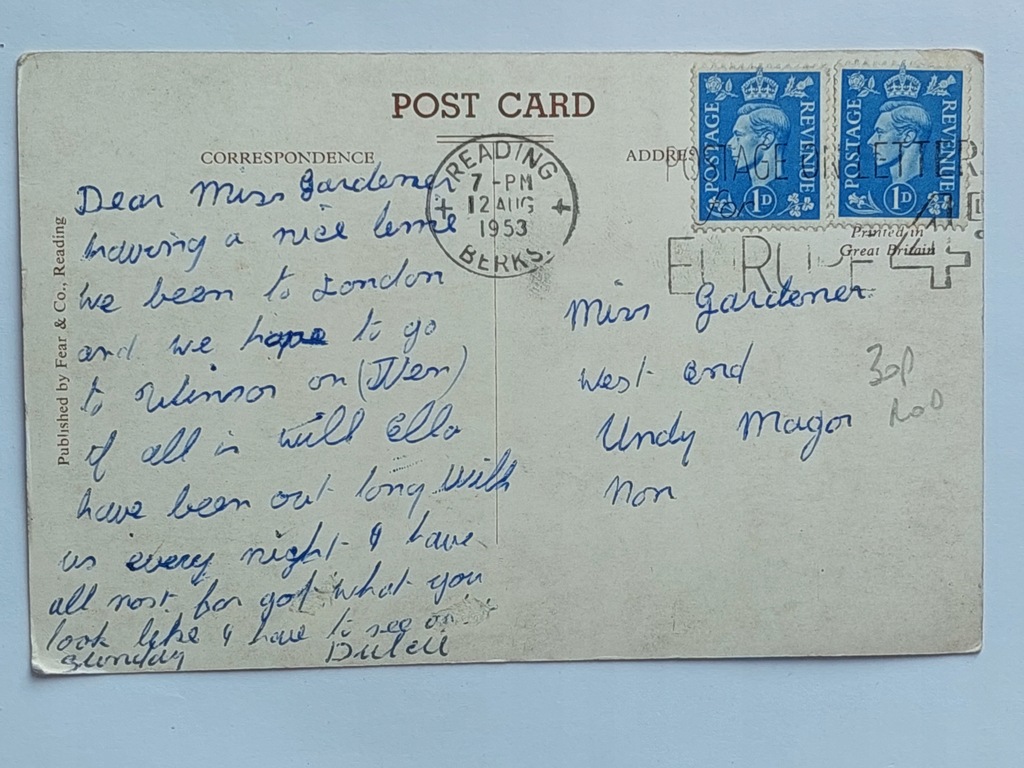 POST CARD
CORRESPONDENCE
ADDRES
POSTAGE
REVENUE
1D
POSTAGE
REVENUE
1D
READING
7 - PM
12 AUG
1953
BERKS.
POSTAGE ON LETTERS
for
EUROPE 4D.
Printed in
Great Britain
Published by Fear & Co., Reading
Dear Miss Gardener
having a nice
we been to London
and we hope to go
to on
all is well Ella
have been out long with
us every night I have
all most for got what you
look like I have to see on
Sunday
Miss Gardener
West End
Undy Magor
Mon
30p